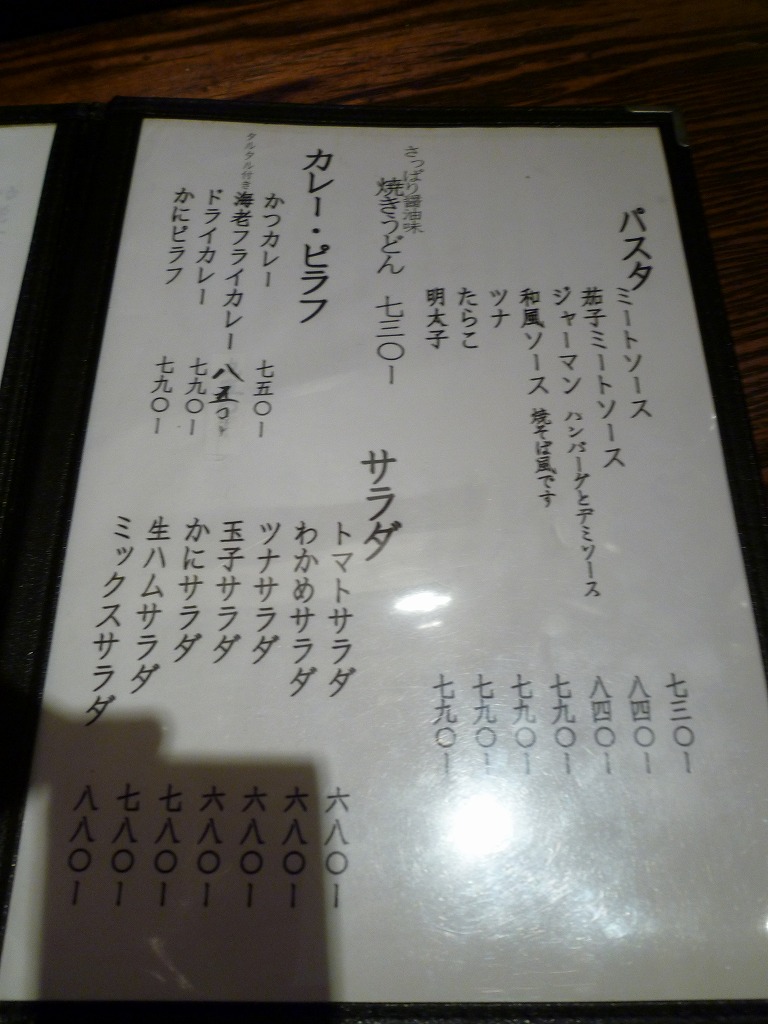 パスタ
ミートソース 七三〇ー
茄子ミートソース 八四〇ー
ジャーマン ハンバーグとデミソース 八四〇ー
和風ソース 焼そば風です 七九〇ー
ツナ 七九〇ー
たらこ 七九〇ー
明太子 七九〇ー
さっぱり醤油味
焼きうどん 七三〇ー
カレー・ピラフ
かつカレー 七五〇ー
タルタル付き 海老フライカレー 八五〇ー
ドライカレー 七九〇ー
かにピラフ 七九〇ー
サラダ
トマトサラダ 六八〇ー
わかめサラダ 六八〇ー
ツナサラダ 六八〇ー
玉子サラダ 六八〇ー
かにサラダ 七八〇ー
生ハムサラダ 七八〇ー
ミックスサラダ 八八〇ー